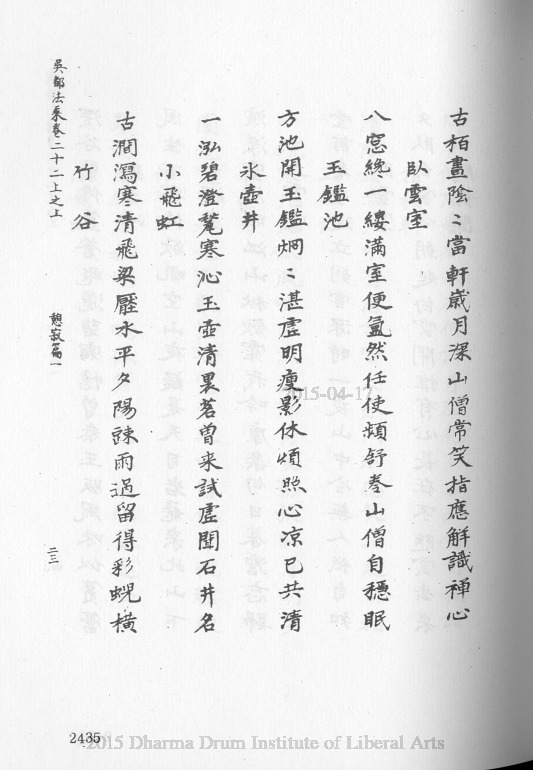 古栢畫陰〻當軒歲月深山僧常笑指應解識禅心
臥雲室
八窓纔一縷滿室便氲然任使頻舒卷山僧自穩眠
玉鑑池
方池開玉鑑烱〻湛虛明瘦影休頻照心凉已共清
氷壺井
一泓碧澄甃寒沁玉壺清裹茗曾来試虛聞石井名
小飛虹
古澗瀉寒清飛梁壓水平夕陽踈雨過留得彩蜺橫
竹谷
吳都法乘卷二十二上之上
憩寂篇一
二三
2435
2015-04-17
2015 Dharma Drum Institute of Liberal Arts